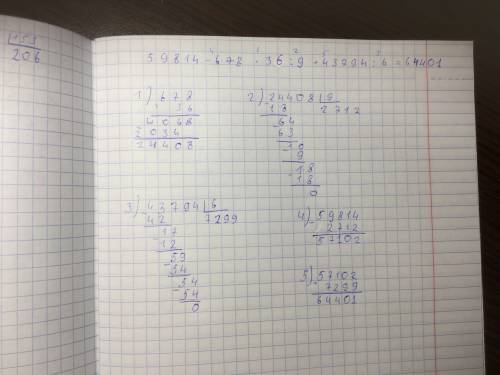 153
206
59814 - 678 · 36 : 9 + 43794 : 6 = 64401
1) 678
36
4068
2034
24408
2) 24408 9
18 2712
- 64
63
- 10
9
- 18
- 18
0
3) - 43794 6
42 7299
- 17
12
- 59
54
- 54
- 54
0
4) - 59814
2712
57102
5) 57102
7299
64401